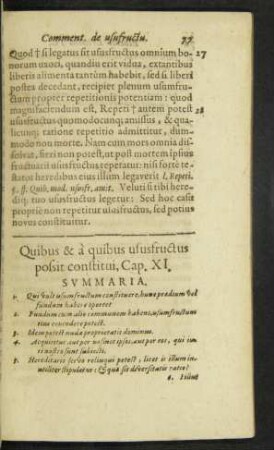 Comment. de usufructu. 77
Quod † si legatus sit ususfructus omnium bo- 27
norum uxori, quandiu erit vidua, extantibus
liberis alimenta tantùm habebit, sed si liberi
postea decedant, recipiet plenum usumfru-
ctum propter repetitionis potentiam: quod
magnifaciendum est, Repeti † autem potest 28
ususfructus quomodocunq; amissus, & qua-
licunq; ratione repetitio admittitur, dum-
modo non morte. Nam cum mors omnia dis-
solvat, fieri non potest, ut post mortem ipsius
fructuarii ususfructus repetatur: nisi fortè te-
stator heredibus eius illum legaverit l. Repeti.
5. ff. Quib. mod. ususfr. amit. Veluti si tibi here-
diq; tuo ususfructus legetur: Sed hoc casu
propriè non repetitur ususfructus, sed potius
novus constituitur.
Quibus & à quibus ususfructus
possit constitui, Cap. XI.
SVMMARIA.
1. Qui vult usumfructum constituere, hunc prædium vel
fundum habere oportet
2. Fundum cum alio communem habens, usumfructum
concedere potest.
3. Idem potest nudæ proprietatis dominus.
4. Acquiritur aut per nosmet ipsos, aut per eos, qui iuri
nostro sunt subiecti.
5. Hereditario servo relinqui potest, licet is illum in-
utiliter stipuletur: & quæ sit diversitatis ratio?